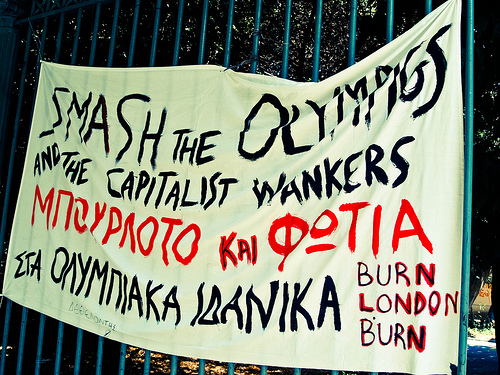 SMASH THE OLYMPIGS
AND THE CAPITALIST WANKERS
ΜΠΟΥΡΛΟΤΟ ΚΑΙ ΦΩΤΙΑ
ΣΤΑ ΟΛΥΜΠΙΑΚΑ ΙΔΑΝΙΚΑ
BURN
LONDON
BURN